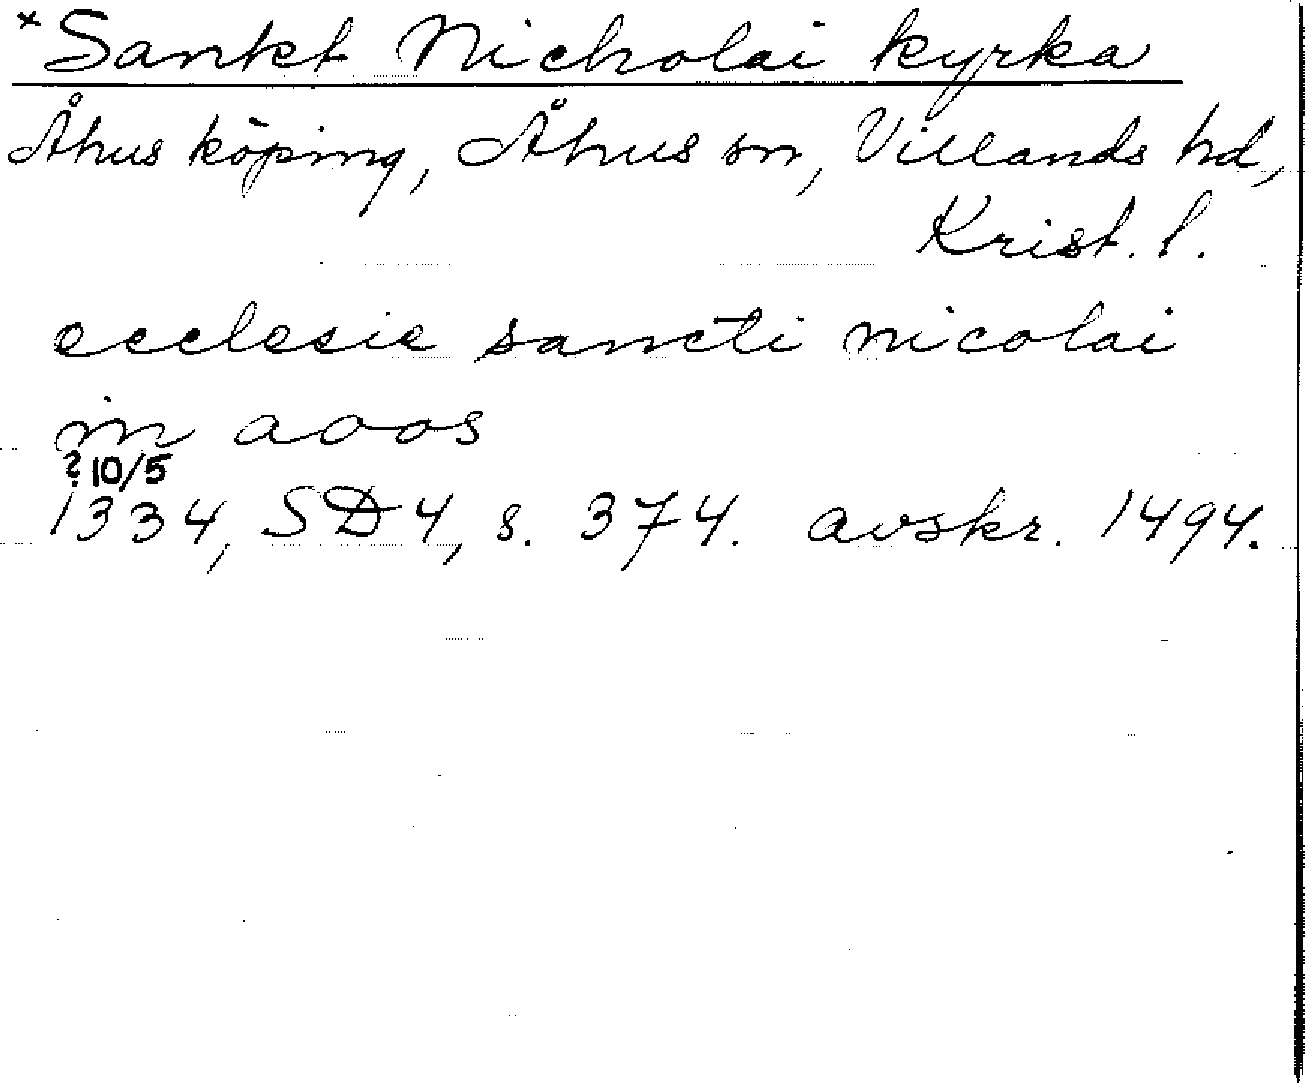 *Sankt Nicholai kyrka
Åhus köping, Åhus sn, Villands hd,
Krist. l.
ecclesie sancti nicolai
in aoos
? 10/5
1334, SD 4, s. 374. avskr. 1494.